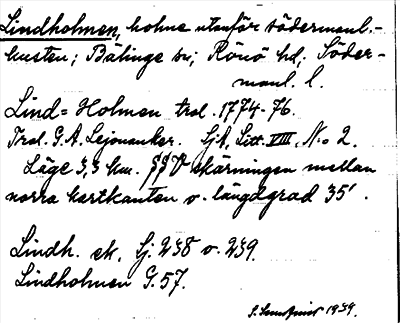 Lindholmen, holme utanför södermanl.-
kusten; Bälinge sn; Rönö hd; Söder-
manl. l.
Lind=Holmen trol. 1774-76.
Trol. G.A. Lejonanker. SjA, Litt. VIII, No 2.
Läge 3,3 km. SSV skärningen mellan
norra kartkanten o. längdgrad 35'.
Lindh. ek. Sj. 238 o. 239.
Lindholmen G. 57.
1939.